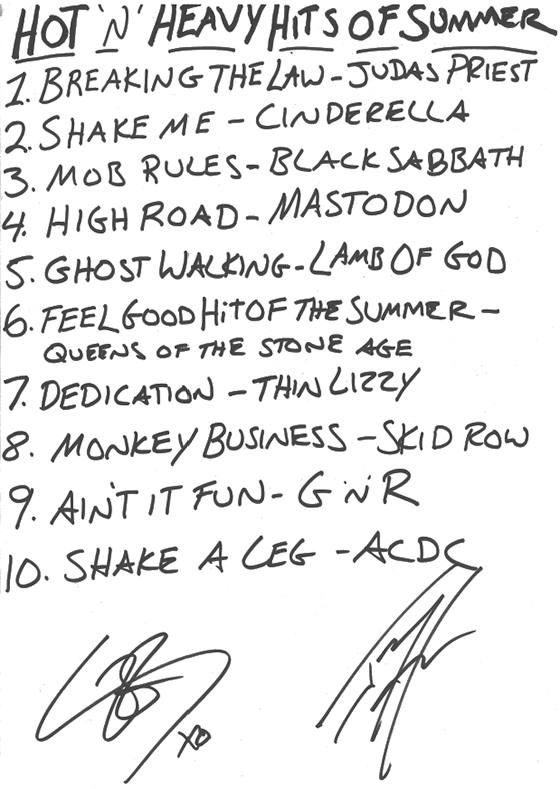 HOT 'N' HEAVY HITS OF SUMMER
1. BREAKING THE LAW - JUDAS PRIEST
2. SHAKE ME - CINDERELLA
3. MOB RULES - BLACK SABBATH
4. HIGH ROAD - MASTODON
5. GHOST WALKING - LAMB OF GOD
6. FEEL GOOD HIT OF THE SUMMER -
QUEENS OF THE STONE AGE
7. DEDICATION - THIN LIZZY
8. MONKEY BUSINESS - SKID ROW
9. AIN'T IT FUN - G 'N' R
10. SHAKE A LEG - ACDC